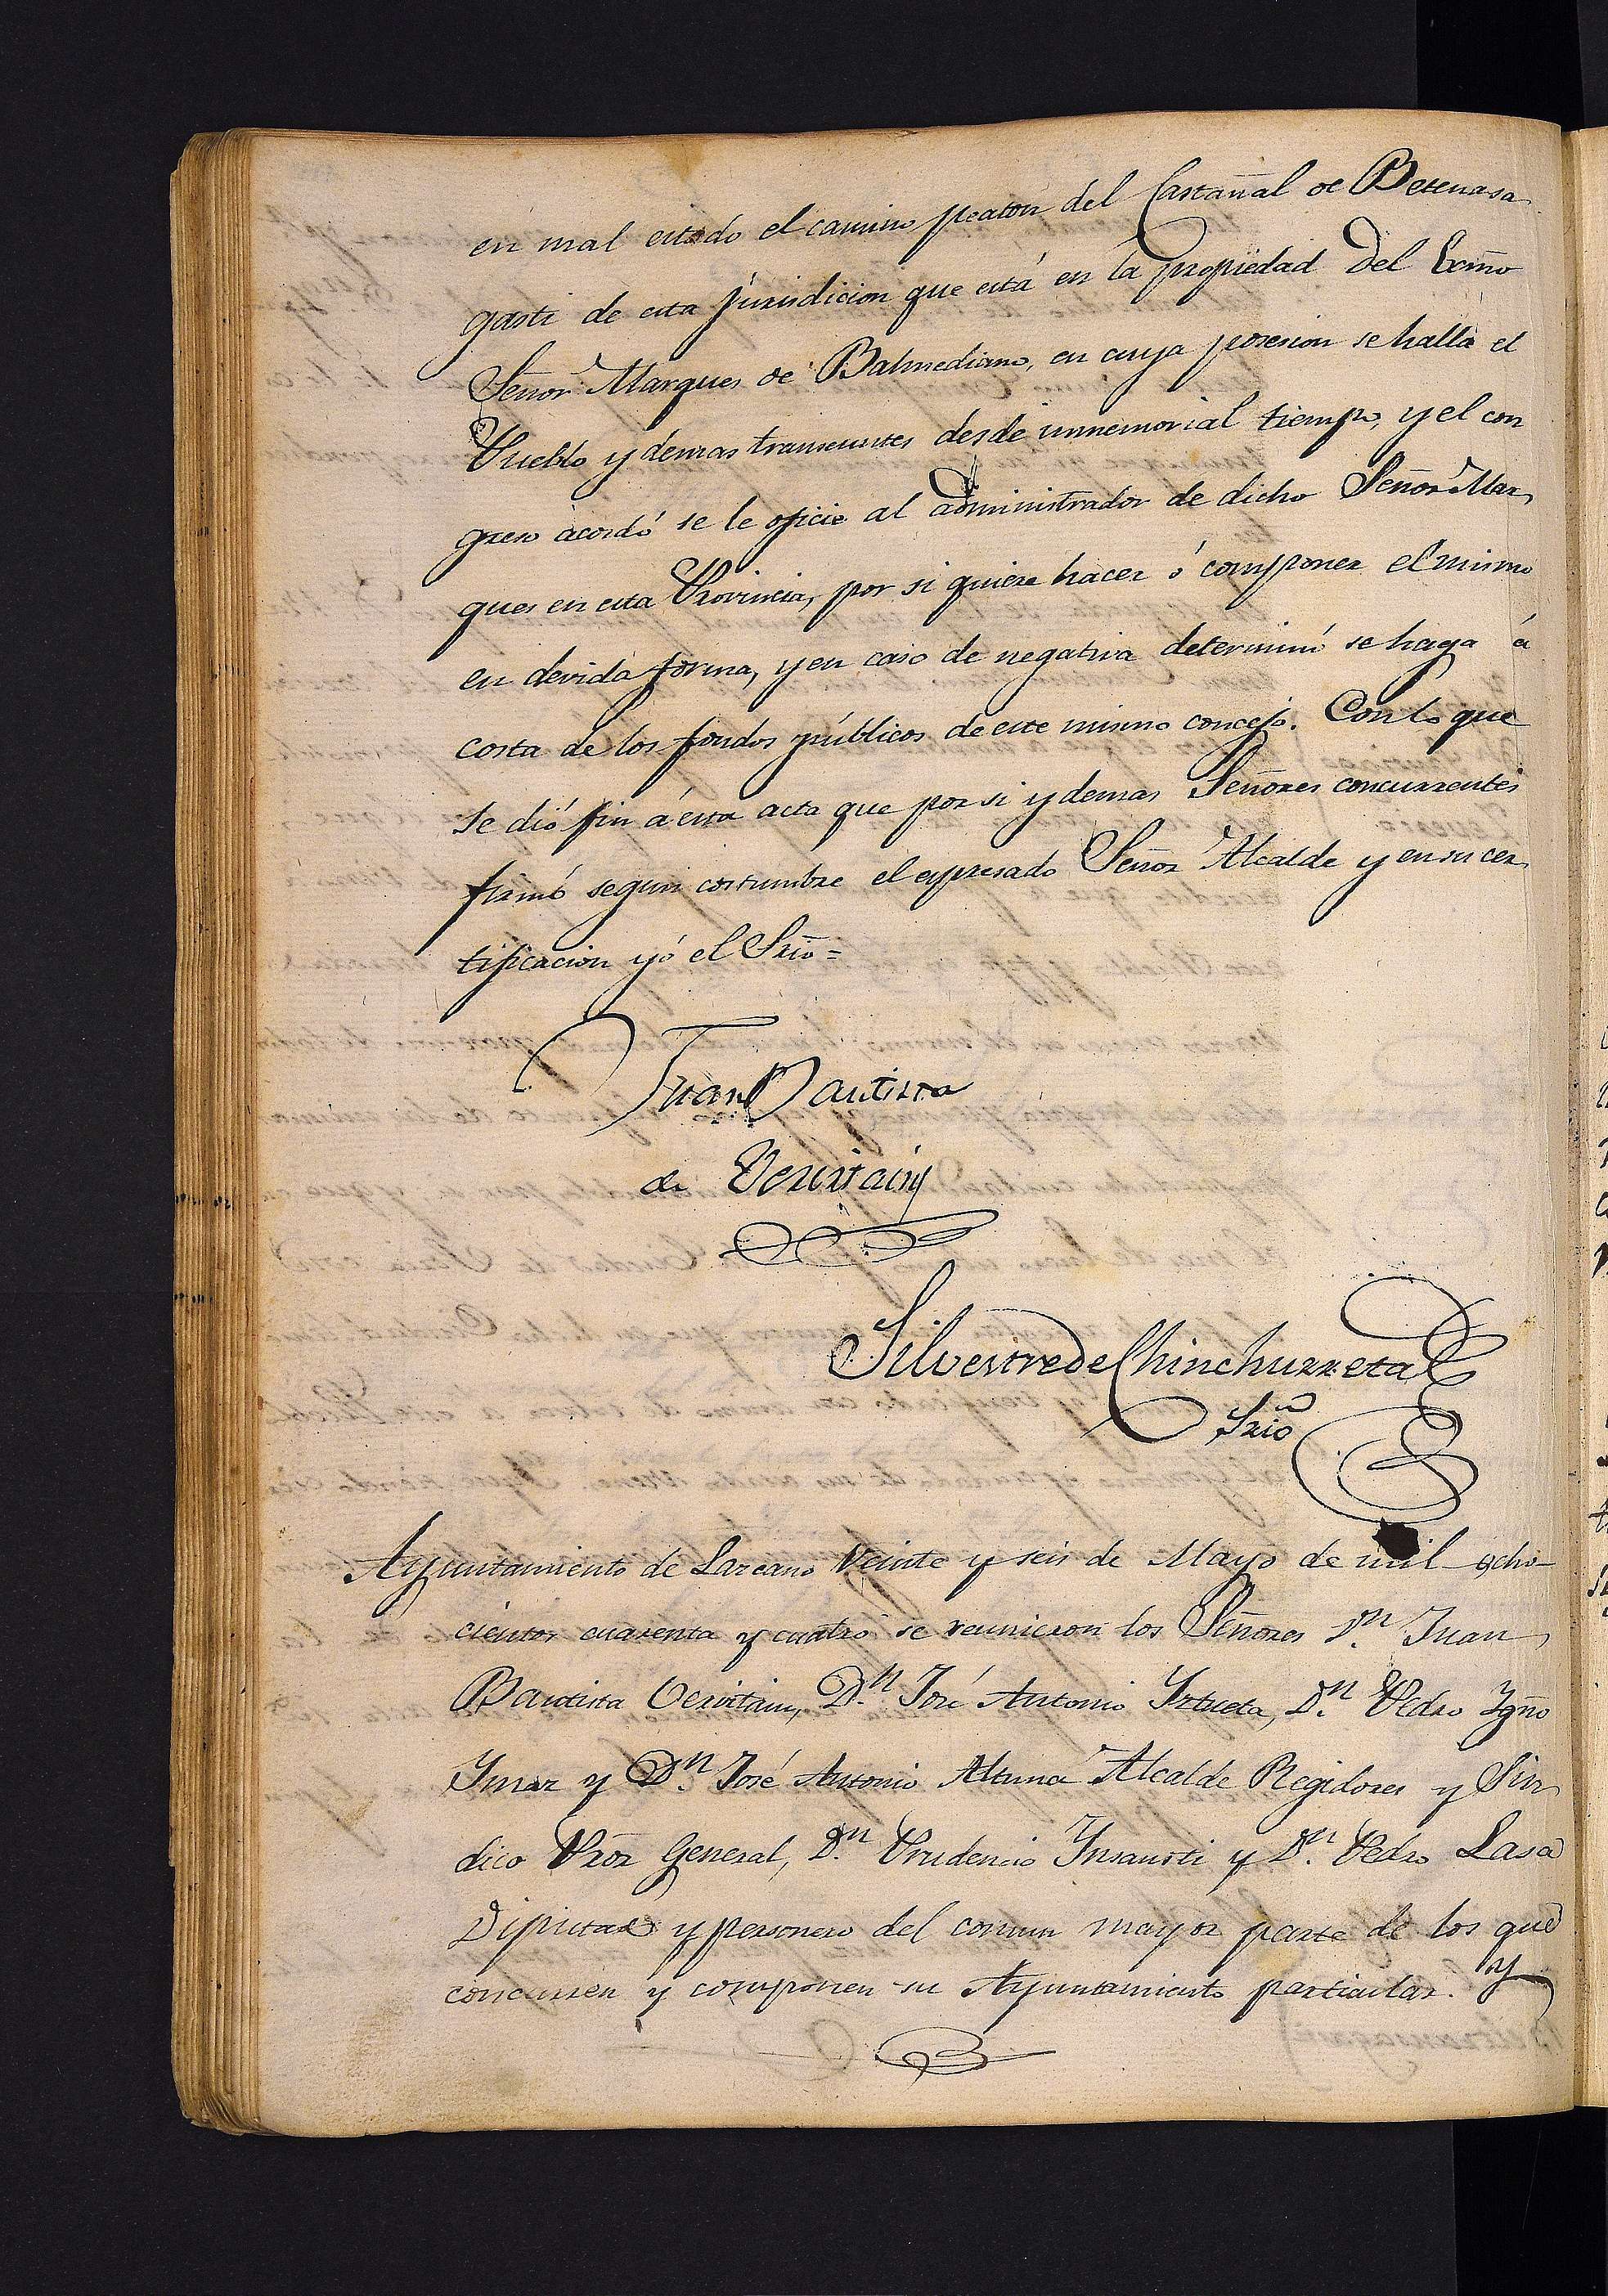 en mal estado el camino peaton del Castañal de Betenasa
gasti de esta jurisdicion que está en la propiedad del Exmo
Señor Marques de Balmediano, en cuya posesion se halla el
Pueblo y demas transeuntes desde inmemorial tiempo, y el con
greso acordó se le oficie al administrador de dicho Señor Mar
ques en esta Provincia, por si quiere hacer ó componer el mismo
en devida forma, y en caso de negativa determinó se haga á
costa de los fondos públicos de este mismo concejo. Con lo que
se dió fin á esta acta que por si y demas Señores concurrentes
firmó segun costumbre el espresado Señor Alcalde y en su cer
tificacion yó el Srio =
Juan Bautista
de Veristain
Silvestre de Chinchurreta
Srio
Ayuntamiento de Lazcano Veinte y seis de Mayo de mil ocho
cientos cuarenta y cuatro se reunieron los Señores Dn. Juan
Bautista Veristain, Dn. José Antonio Iztueta, Dn. Pedro Ygño
Ymaz y Dn. José Antonio Altuna Alcalde Regidores y Sin
dico Pror General, Dn. Prudencio Ynsausti y Dn. Pedro Lasa
Diputado y personero del comun mayor parte de los que
concurren y componen su Ayuntamiento particular. Y